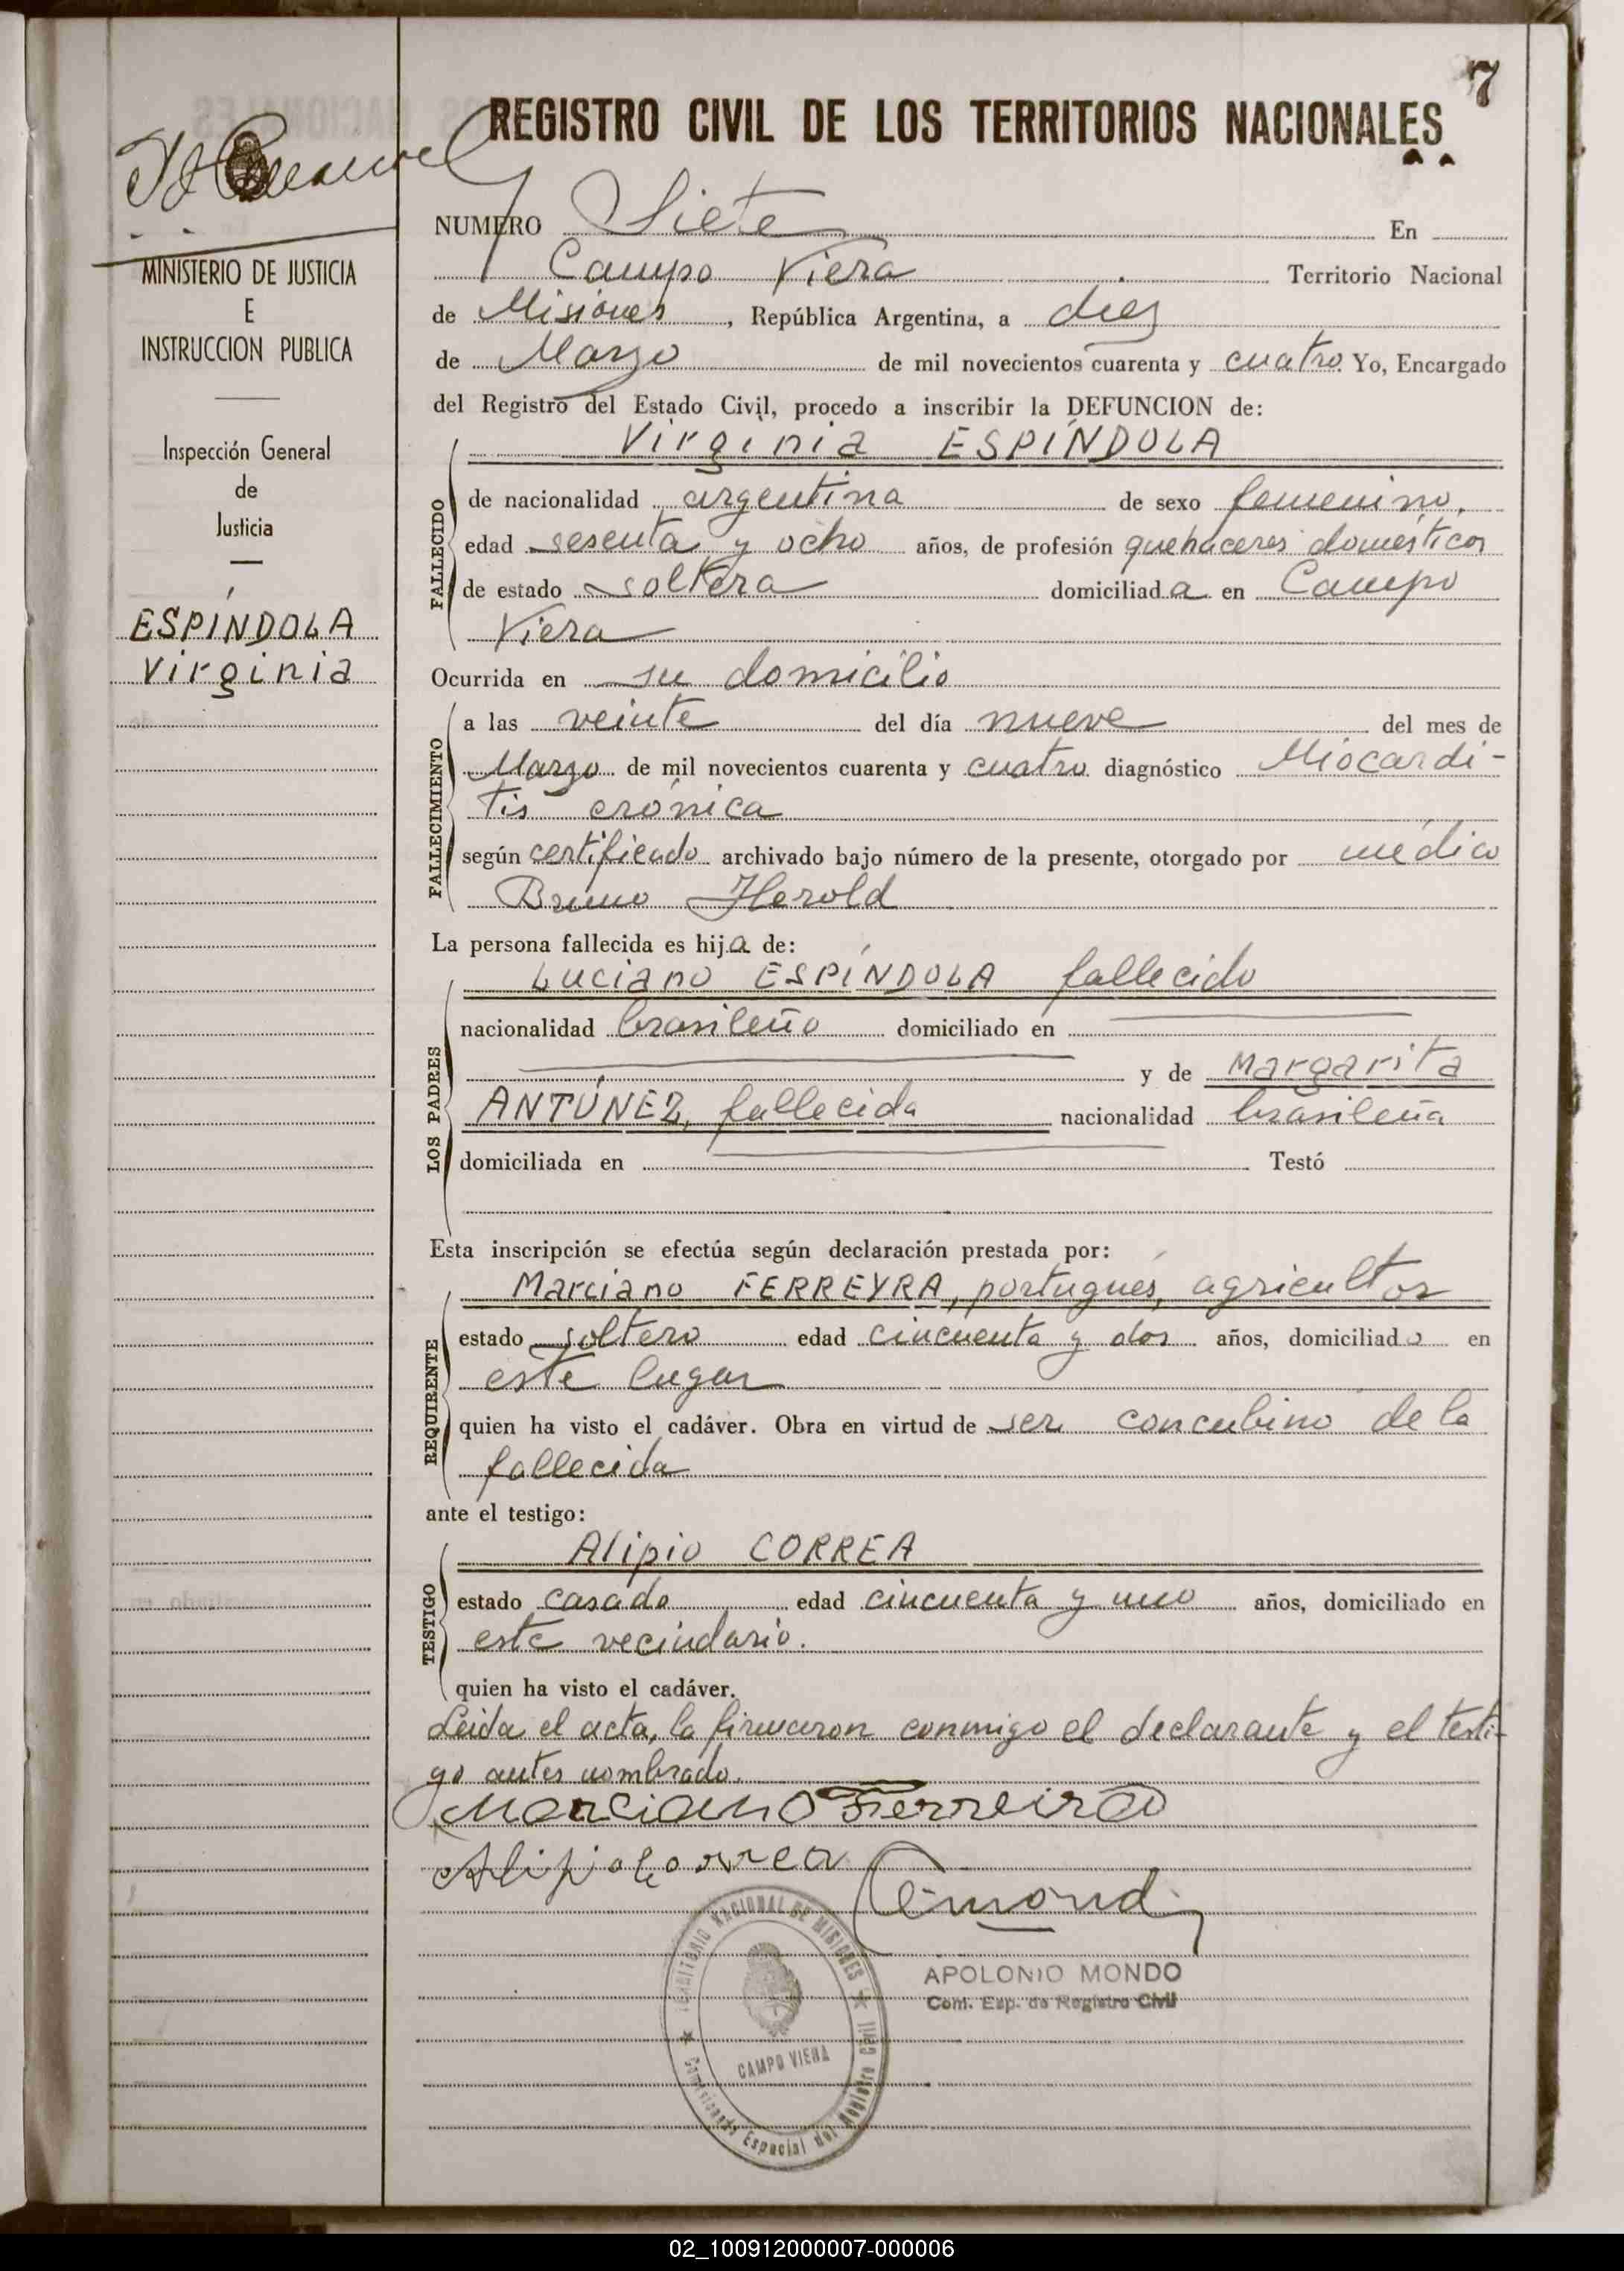 7
REGISTRO CIVIL DE LOS TERRITORIOS NACIONALES
MINISTERIO DE JUSTICIA
E
INSTRUCCION PUBLICA
Inspección General
de
Justicia
ESPÍNDOLA
Virginia
NUMERO Siete En
Campo Viera Territorio Nacional
de Misiones, República Argentina, a diez
de Marzo de mil novecientos cuarenta y cuatro. Yo, Encargado
del Registro del Estado Civil, procedo a inscribir la DEFUNCION de:
Virginia ESPÍNDOLA
FALLECIDO
de nacionalidad argentina de sexo femenino,
edad sesenta y ocho años, de profesión quehaceres domésticos
de estado soltera domiciliada en Campo
Viera
Ocurrida en su domicilio
FALLECIMIENTO
a las veinte del día nueve del mes de
Marzo de mil novecientos cuarenta y cuatro diagnóstico Miocardi-
tis crónica
según certificado archivado bajo número de la presente, otorgado por médico
Bruno Herold
La persona fallecida es hija de:
LOS PADRES
Luciano ESPÍNDOLA fallecido
nacionalidad brasileño domiciliado en
y de Margarita
ANTÚNEZ, fallecida nacionalidad brasileña
domiciliada en Testó
Esta inscripción se efectúa según declaración prestada por:
REQUIRENTE
Marciano FERREYRA, portugués, agricultor
estado soltero edad cincuenta y dos años, domiciliado en
este lugar
quien ha visto el cadáver. Obra en virtud de ser concubino de la
fallecida
ante el testigo:
TESTIGO
Alipio CORREA
estado casado edad cincuenta y uno años, domiciliado en
este vecindario.
quien ha visto el cadáver.
Leida el acta, la firmaron conmigo el declarante y el testi-
go antes nombrado.
Marciano Ferreira
Alipio Correa
APOLONIO MONDO
Com. Esp. de Registro Civil
TERRITORIO NACIONAL DE MISIONES
CAMPO VIERA
Comisionado Especial del Registro Civil
02_100912000007-000006